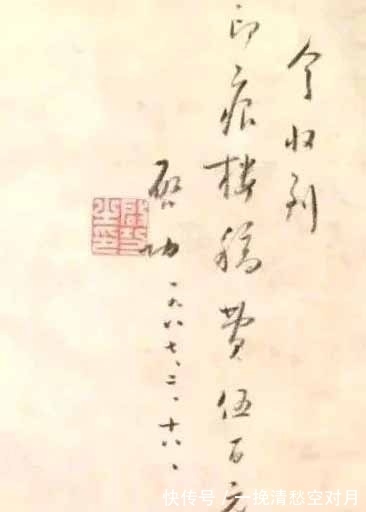 今收到
印痕楼稿费伍百元
启功
一九八七、二、十八、
启功之印
快传号/一晚清愁空对月